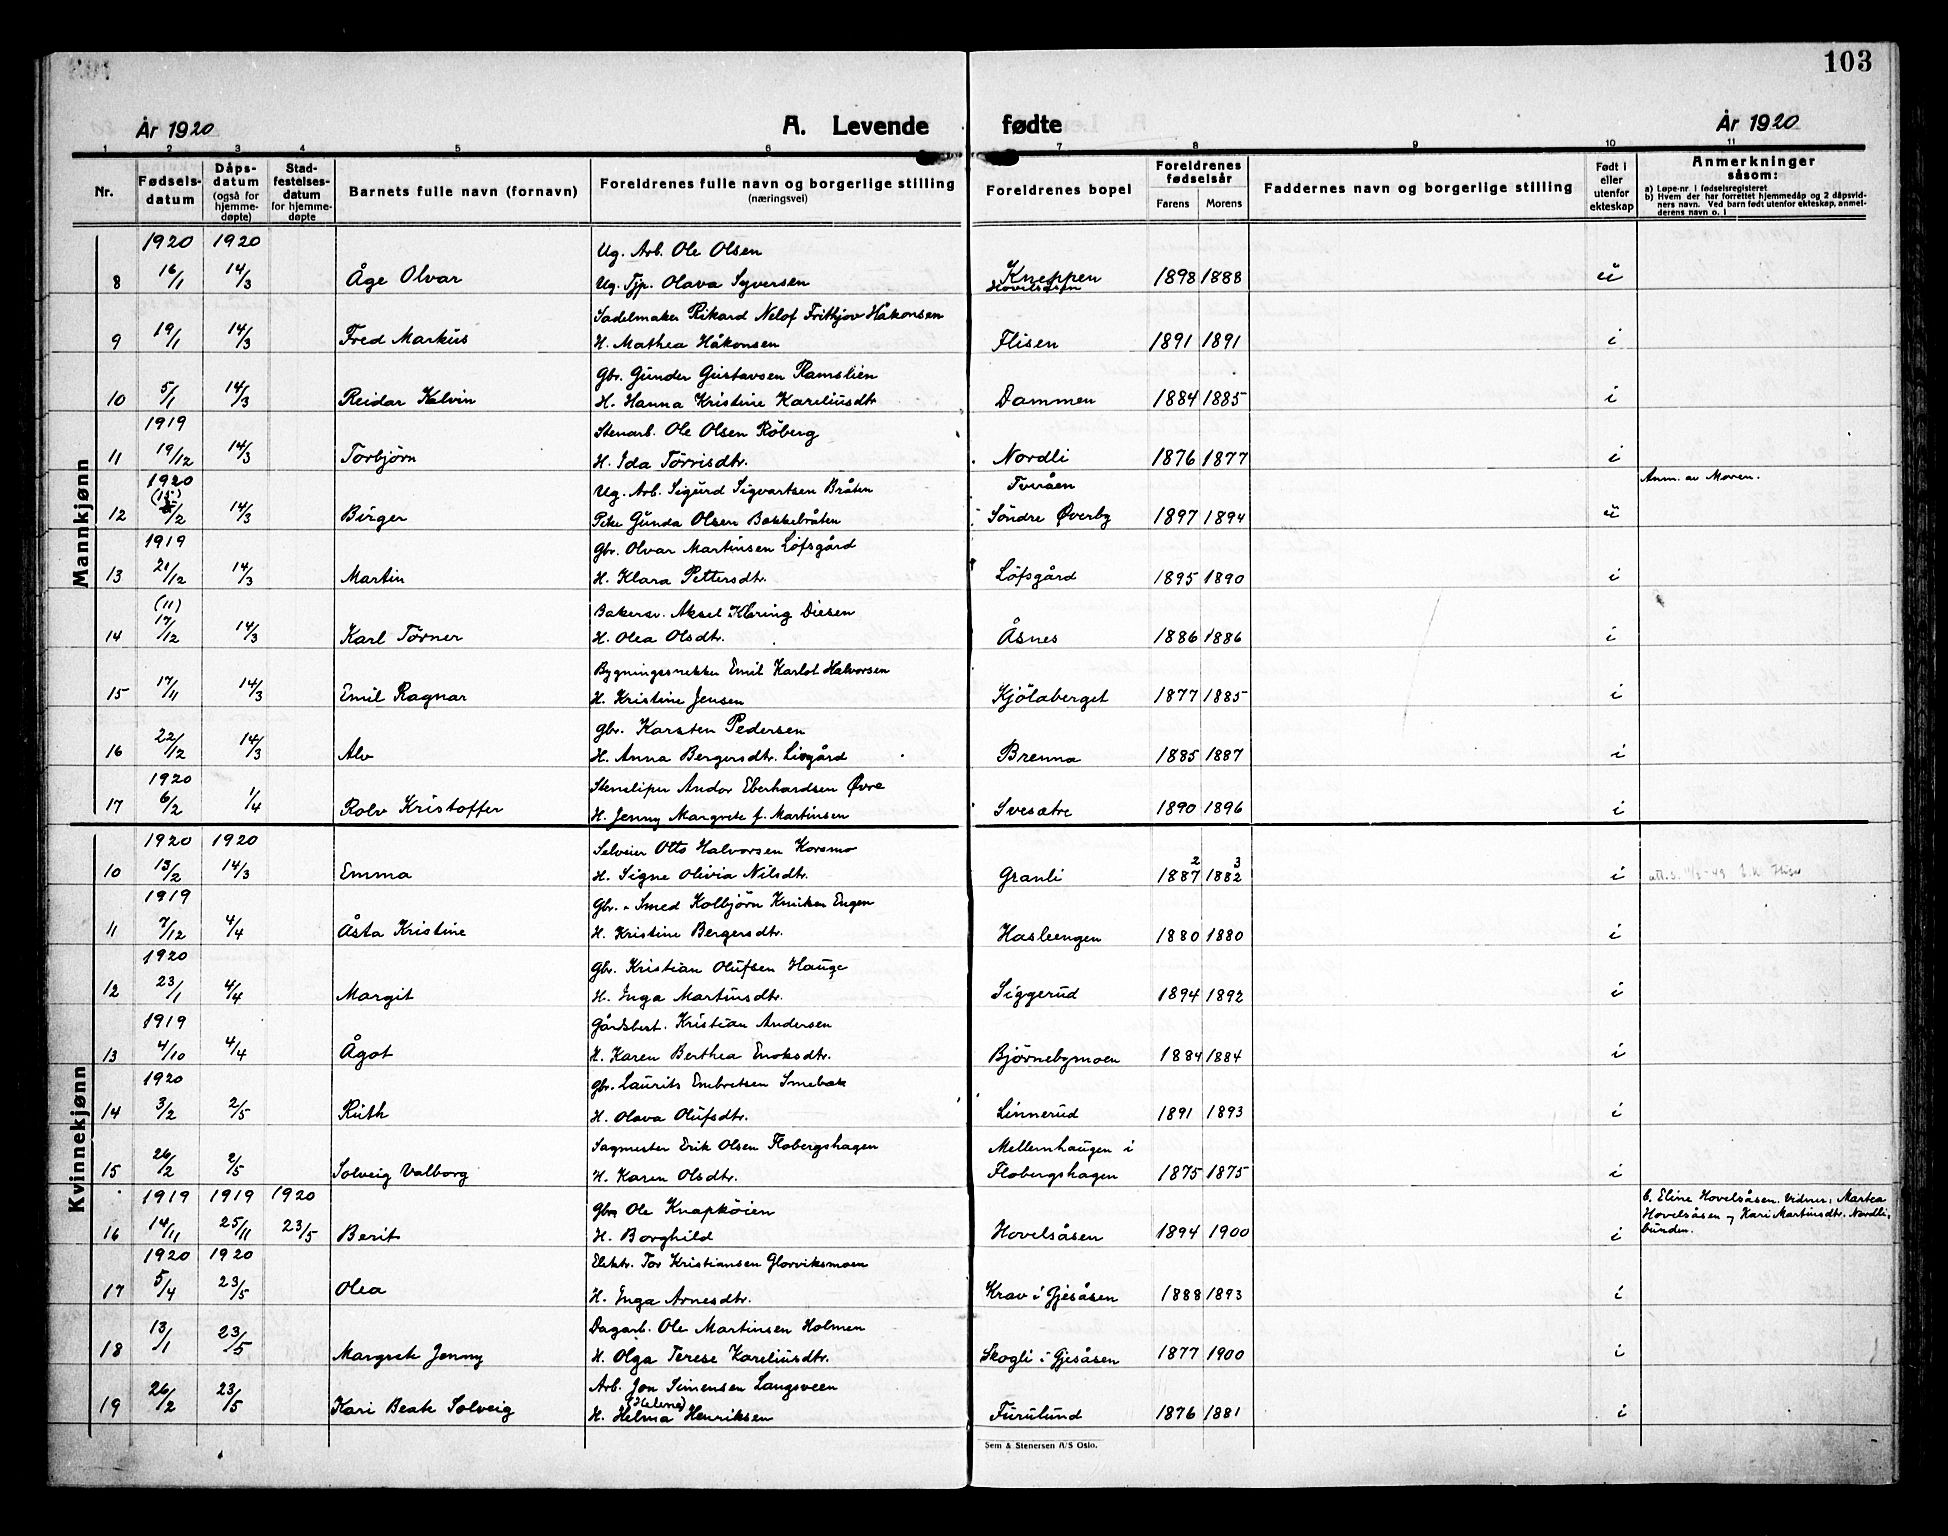 103
År 1920 A. Levende fødte År 1920
1 2 3 4 5 6 7 8 9 10 11
Nr. | Fødsels-datum | Dåps-datum (også for hjemme-døpte) | Stad-festelses-datum for hjemme-døpte | Barnets fulle navn (fornavn) | Foreldrenes fulle navn og borgerlige stilling (næringsvei) | Foreldrenes bopel | Foreldrenes fødselsår Farens Morens | Faddernes navn og borgerlige stilling | Født i eller utenfor ekteskap | Anmerkninger såsom: a) Løpe-nr. i fødselsregisteret b) Hvem der har forrettet hjemmedåp og 2 dåpsvidners navn. Ved barn født utenfor ekteskap, anmelderens navn o. l
Mannkjønn
1920 1920 Ug. Arb. Ole Olsen
8 16/1 14/3 Åge Olvar Ug. Tjp. Olava Syversen Kneppen Hovelsåsen 1898 1888 u
Sadelmaker Rikard Nelof Frithjov Håkonsen
9 19/1 14/3 Fred Markus H. Mathea Håkonsen Flisen 1891 1891 i
Gbr. Gunder Gustavsen Ramslien
10 5/1 14/3 Reidar Kalvin H. Hanna Kristine Kareliusdtr Dammen 1884 1885 i
1919 Stenarb. Ole Olsen Röberg
11 19/12 14/3 Torbjörn H. Ida Törrisdtr. Nordli 1876 1877 i
1920 Ug. Arb. Sigurd Sigvartsen Bråten Tveråen Anm. av Moren.
12 (15) 5/2 14/3 Birger Pike Gunda Olsen Bakkebråten Söndre Øverby 1897 1894 u
1919 Gbr. Olvar Martinsen Löfsgård
13 21/12 14/3 Martin H. Klara Pettersdtr. Löfsgård 1895 1890 i
(11) Bakersv. Aksel Kláring Diesen
14 17/12 14/3 Karl Törner H. Olea Olsdtr. Åsnes 1886 1886 i
Bygningssnekker Emil Karlot Halvorsen
15 17/11 14/3 Emil Ragnar H. Kristine Jensen Kjölaberget 1877 1885 i
Gbr. Karsten Pedersen
16 22/12 14/3 Alv H. Anna Bergersdtr. Lisgård Brenna 1885 1887 i
1920 Stensliper Andor Eberhardsen Øvre
17 6/2 1/4 Rolv Kristoffer H. Jenny Margrete f. Martinsen Svesætre 1890 1896 i
Kvinnekjønn
1920 1920 Selveier Otto Halvorsen Korsmo 2 3
10 13/2 14/3 Emma H. Signe Olivia Nilsdtr. Granli 1887 1882 i
1919 Gbr. - Smed Kolbjörn Knutsen Engen
11 7/12 4/4 Åsta Kristine H. Kristine Bergersdtr. Hasleengen 1880 1880 i
1920 Gbr. Kristian Olufsen Hauge
12 23/1 4/4 Margit H. Inga Martinsdtr. Siggerud 1894 1892 i
1919 Gårdsbest. Kristian Andersen
13 4/10 4/4 Ågot H. Karen Berthea Enoksdtr. Björnebymoen 1884 1884 i
1920 Gbr. Laurits Embretsen Smebak
14 3/2 2/5 Ruth H. Olava Olufsdtr. Linnerud 1891 1893 i
Sagmester Erik Olsen Flobergshagen Mellemhaugen i
15 26/2 2/5 Solveig Valborg H. Karen Olsdtr. Flobergshagen 1875 1875 i
1919 1919 1920 Gbr Ole Knapköien b. Eline Hovelsåsen. Vidner: Martea
16 14/11 25/11 23/5 Berit H. Borghild Hovelsåsen 1894 1900 i Hovelsåsen og Kari Martinsdtr. Nordli,
bunden.
1920 1920 Elektr. Tor Kristiansen Glorviksmoen
17 5/4 23/5 Olea H. Inga Arnesdtr. Krav i Gjesåsen 1888 1893 i
Dagarb. Ole Martinsen Holmen
18 13/1 23/5 Margrete Jenny H. Olga Terese Kareliusdtr. Skogli i Gjesåsen 1877 1900 i
Arb. Jon Simensen Langsveen
(Helene)
19 26/2 23/5 Kari Beate Solveig H. Helma Henriksen Furulund 1876 1881 i
Sem & Stenersen A/S Oslo.